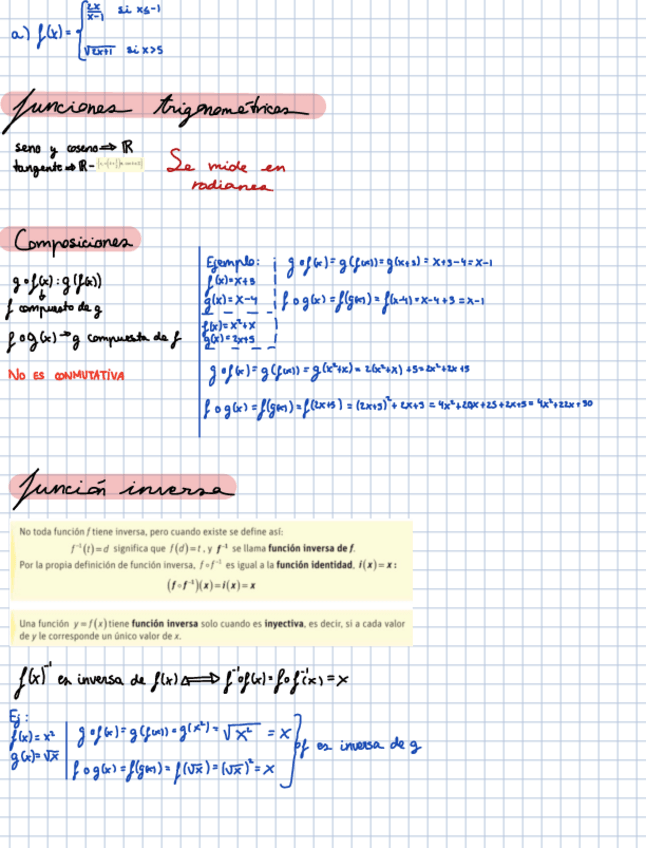 a) f(x) = { 2x/x-1 si x≤-1
√2x+1 si x>5
funciones trigonométricas
seno y coseno ⇒ ℝ
tangente ⇒ ℝ -
Se mide en
radianes
Composiciones
g∘f(x) : g(f(x))
f compuesto de g
f∘g(x) → g compuesta de f
NO ES CONMUTATIVA
Ejemplo:
f(x)=x+3
g(x)=x-4
g∘f(x)=g(f(x))=g(x+3)=x+3-4=x-1
f∘g(x)=f(g(x))=f(x-4)=x-4+3=x-1
f(x)=x²+x
g(x)=2x+5
g∘f(x)=g(f(x))=g(x²+x)=2(x²+x)+5=2x²+2x+5
f∘g(x)=f(g(x))=f(2x+5)=(2x+5)²+2x+5=4x²+20x+25+2x+5=4x²+22x+30
función inversa
No toda función f tiene inversa, pero cuando existe se define así:
f⁻¹(t)=d significa que f(d)=t, y f⁻¹ se llama función inversa de f.
Por la propia definición de función inversa, f∘f⁻¹ es igual a la función identidad, i(x)=x:
(f∘f⁻¹)(x)=i(x)=x
Una función y=f(x) tiene función inversa solo cuando es inyectiva, es decir, si a cada valor
de y le corresponde un único valor de x.
f(x)⁻¹ es inversa de f(x) ⟺ f⁻¹∘f(x)=f∘f⁻¹(x)=x
Ej:
f(x)=x²
g(x)=√x
g∘f(x)=g(f(x))=g(x²)=√x²=x
f∘g(x)=f(g(x))=f(√x)=(√x)²=x
f es inversa de g